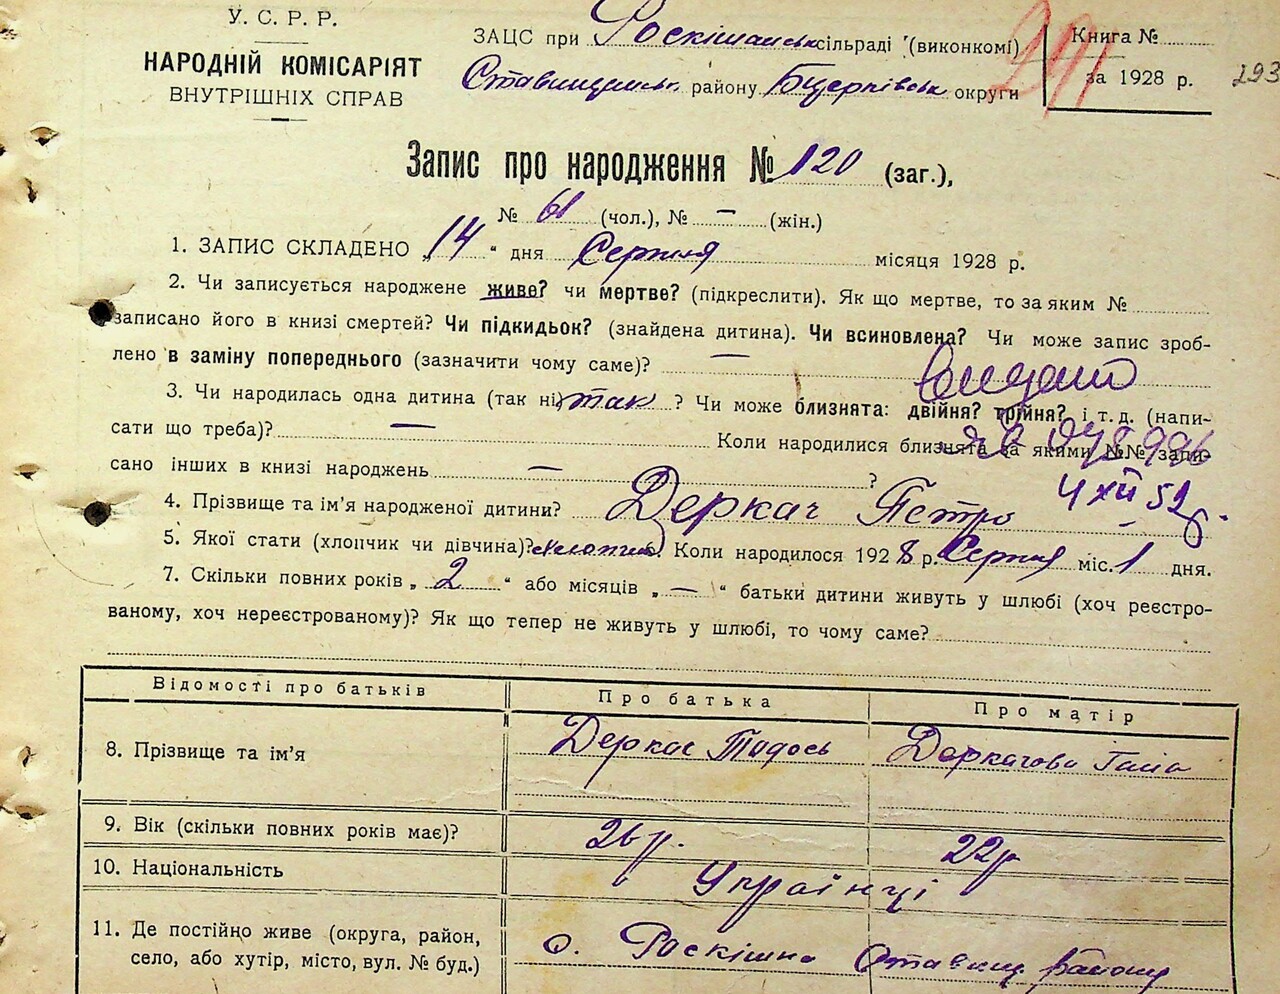 У. С. Р. Р.
НАРОДНІЙ КОМІСАРІЯТ
ВНУТРІШНІХ СПРАВ
ЗАЦС при Роскішанськ сільраді (виконкомі)
Ставищанськ. району Бцерківськ округи
291
Книга №
за 1928 р.
293
Запис про народження № 120 (заг.),
№ 61 (чол.), № — (жін.)
1. ЗАПИС СКЛАДЕНО „14“ дня Серпня місяця 1928 р.
2. Чи записується народжене живе? чи мертве? (підкреслити). Як що мертве, то за яким №
записано його в книзі смертей? Чи підкидьок? (знайдена дитина). Чи всиновлена? Чи може запис зроб-
лено в заміну попереднього (зазначити чому саме)? —
3. Чи народилась одна дитина (так ні) так ? Чи може близнята: двійня? трійня? і т. д. (напи-
сати що треба)? — Коли народилися близнята за якими №№ запи-
сано інших в книзі народжень — ?
4 XII 52
4. Прізвище та ім’я народженої дитини? Деркач Петро
5. Якої стати (хлопчик чи дівчина)? хлопчик 6. Коли народилося 1928 р. Серпня міс. 1 дня.
7. Скільки повних років „ 2 “ або місяців „ — “ батьки дитини живуть у шлюбі (хоч реєстро-
ваному, хоч нереєстрованому)? Як що тепер не живуть у шлюбі, то чому саме?
Відомості про батьків Про батька Про матір
8. Прізвище та ім’я Деркач Тодось Деркачова Ганна
9. Вік (скільки повних років має)? 26 р. 22 р
10. Національність Українці
11. Де постійно живе (округа, район,
село, або хутір, місто, вул. № буд.) с. Роскішна Ставищ. району